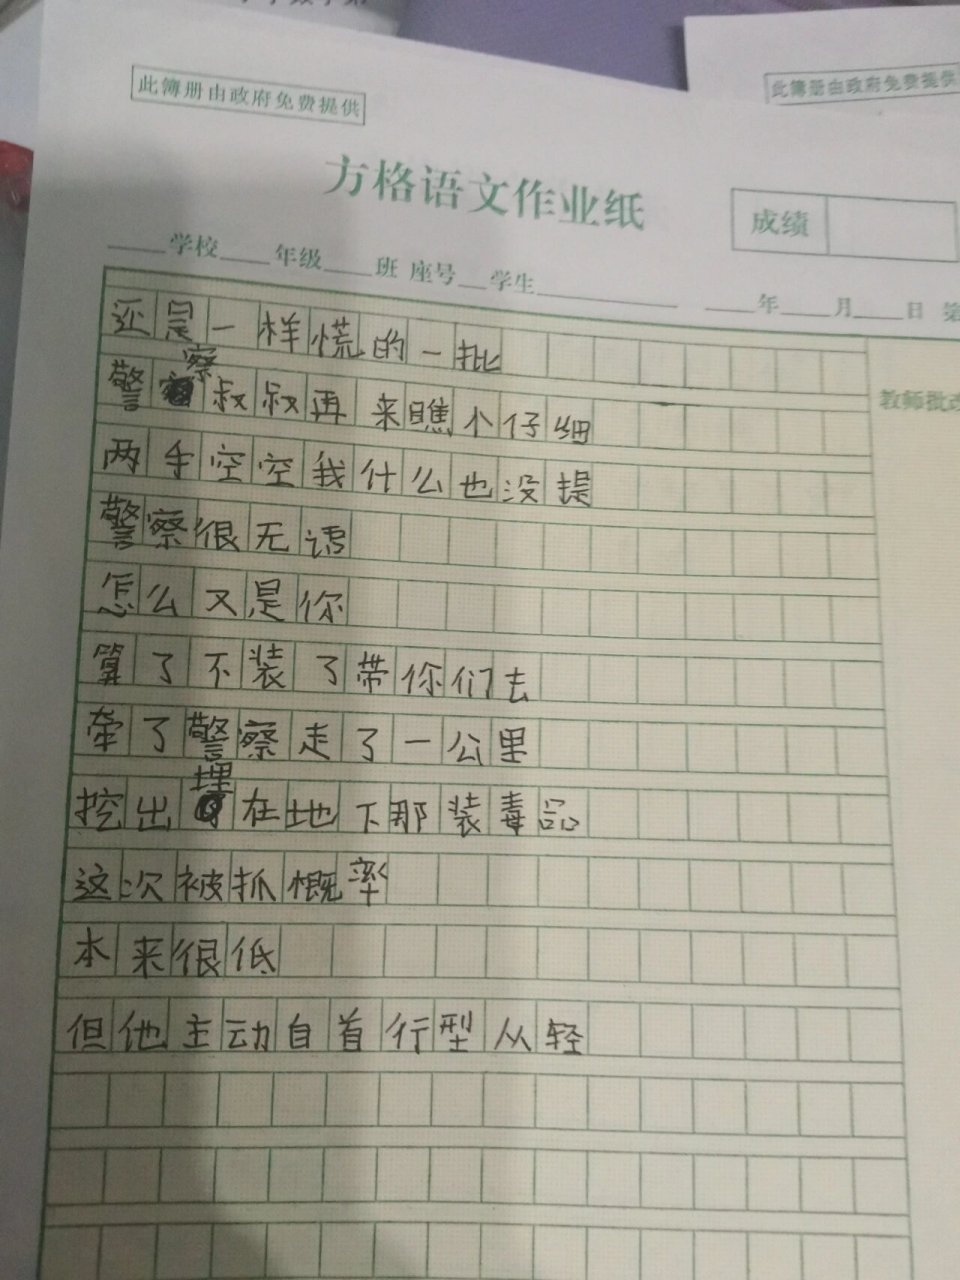 此簿册由政府免费提供
此簿册由政府免费提供
方格语文作业纸
成绩
学校 年级 班 座号 学生
年 月 日 第
教师批改
还是一样慌的一批
警察叔叔再来瞧个仔细
两手空空我什么也没提
警察很无语
怎么又是你
算了不装了带你们去
牵了警察走了一公里
挖出埋在地下那装毒品
这次被抓概率
本来很低
但他主动自首行型从轻